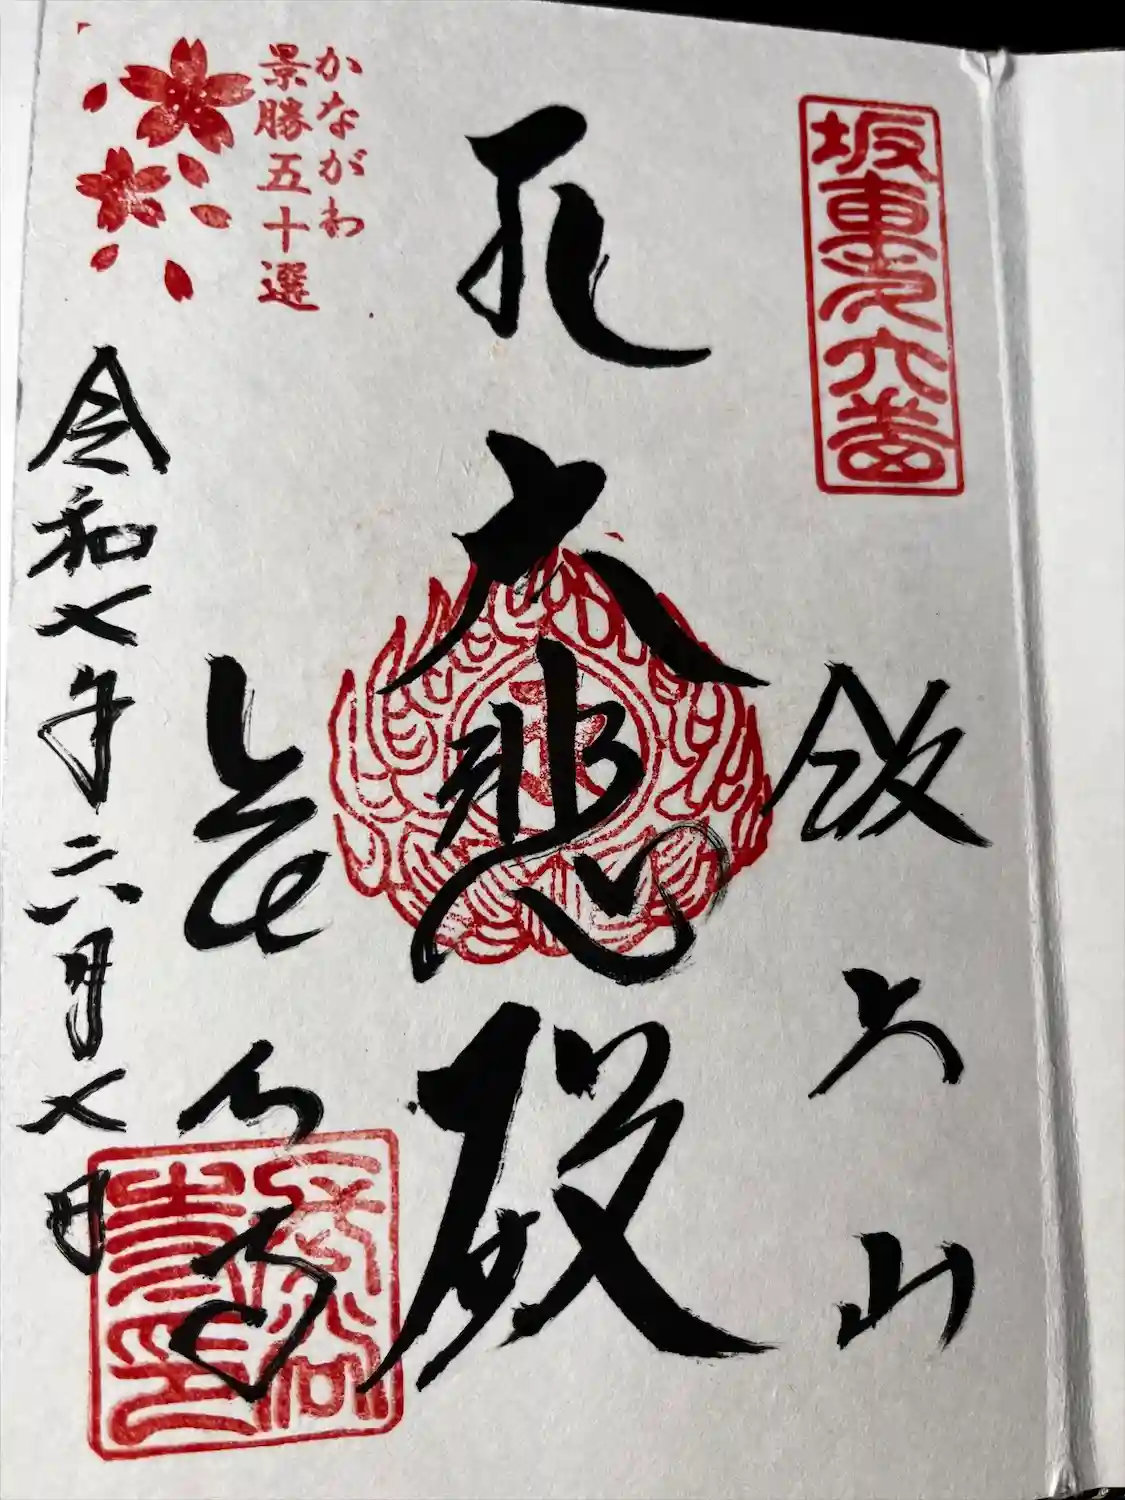 坂東第六番
飯上山
大悲殿
長谷寺
長谷
寺印
かながわ
景勝五十選
令和七年六月七日